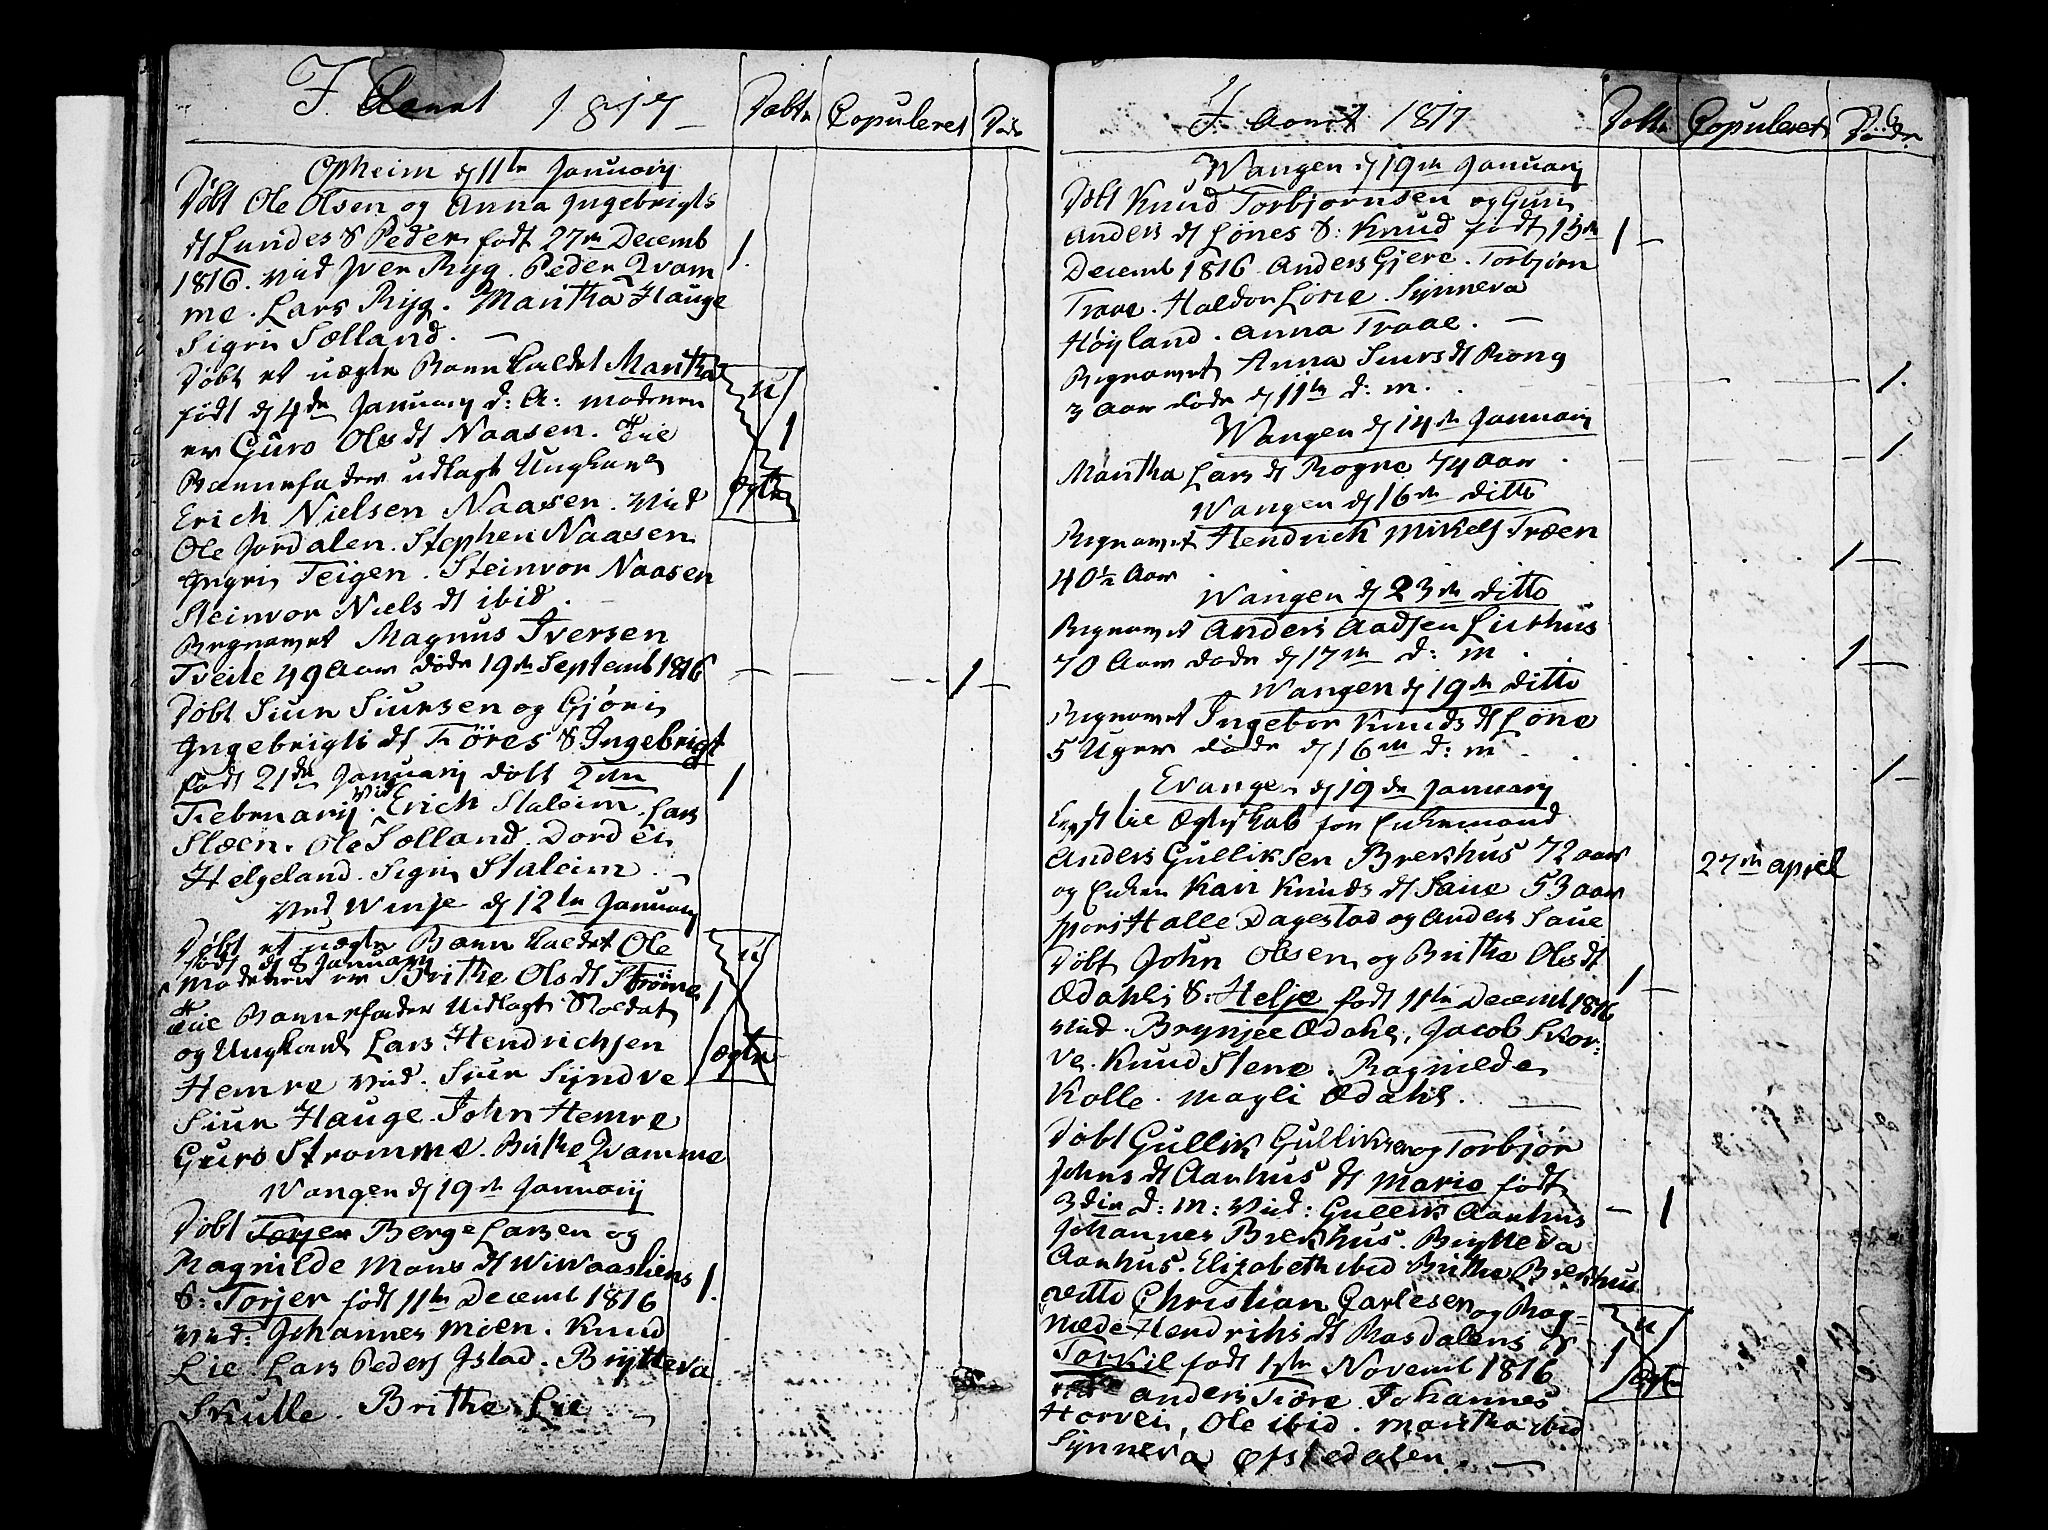 I Aaret 1817
Døbte Copuleret Døde
Opheim d 11te January
Døbt Ole Olsen og Anna Ingebrigts
dt Lundes S Peder født 27de Decemb
1816. vid Iver Ryg. Peder Qvam
me. Lars Ryg. Martha Hauge
Sigri Sælland.
Døbt et uægte Barn kaldet Martha
født d 4de January d: A: moderen
er Guro Ols dt Naasen. Til
Barnefader udlagt Ungkarl
Erich Nielsen Naasen. Vid
Ole Jordalen. Stephen Naasen
Ingri Teigen. Steinvor Naasen
Steinvor Niels dt ibid.
Begravet Magnus Iversen
Tveite 49 Aar døde 19de Septemb 1816
Døbt Siur Siursen og Gjøri
Ingebrigts dt Tiøres S Ingebrigt
født 21de January døbt 2den
Februarij. Vid Erich Staleim. Lars
Slæen. Ole Sælland. Dordei
Helgeland. Sigri Staleim.
Ved Winje d 12te January
Døbt et uægte Barn kaldet Ole
født d 8 January
Moderen er Brithe Ols dt Strøme
til Barnefader Udlagt Soldat
og Ungkarl Lars Hendrichsen
Hemre Vid. Siur Syndve
Siur Hauge. John Hemre
Guro Stromme. Brithe Qvamme
Wangen d 19de January
Døbt Torjer Berge Larsen og
Ragnilde Mons dt Wiwaasliens
S: Torjer født 11te Decemb 1816
Vid: Johannes Moen. Knud
Lie Lars Peders Istad. Brytteva
Skutle. Brithe Lie
u
1
ægte
I Aaret 1817
Døbte Copuleret Døde
Wangen d 19de January
Døbt Knud Torbjørnsen og Guri
Anders dt Lønes S: Knud født 15de
Decemb 1816 Anders Gjere. Torbjørn
Traae. Haldor Løne. Synneva
Høyland. Anna Traae.
Begravet Anna Siurs dt Rong
3 Aar døde d 11te d: m.
Wangen d 14de January
Martha Lars dt Rogne 74 Aar
Wangen d 16de ditto
Begravet Hendrich Mikels Træen
40½ Aar
Wangen d 23de ditto
Begravet Anders Aadsen Lirhus
70 Aar døde d 17de d: m.
Wangen d 19de ditto
Begravet Ingebor Knuds dt Løne
5 Uger døde d 16de d: m.
Evanger d 19de January
ægteskab for Enkemand
Anders Gulliksen Brekhus 72 aar
og Enken Kari Knuds dt Saue 53 aar
spors Halle Dagestad og Anders Saue
27de April
Døbt John Olsen og Brithe Ols dt
Ødahls S: Helje født 11te Decemb 1816
vid. Brynjel Ødahl, Jacob Skor-
ve. Knud Stene. Ragnilde
Kolle. Magli Ødahl.
Døbt Gullik Gulliksen og Torbjør
Johns dt Aarhus dt Mario født
3die d: m: Vid: Gullik Aarhus
Johannes Brekhus. Brytteva
Aarhus. Elizabeth ibid Brithe Brekhus
ditto Christian Carlesen og Rag-
nilde Hendriks dt Rasdalens S
Torkil født 1ste Novemb 1816
vid Anders Tiøre Johannes
Horvei, Ole ibid. Martha ibid
Synneva Øfstedalen.
u
1
ægte